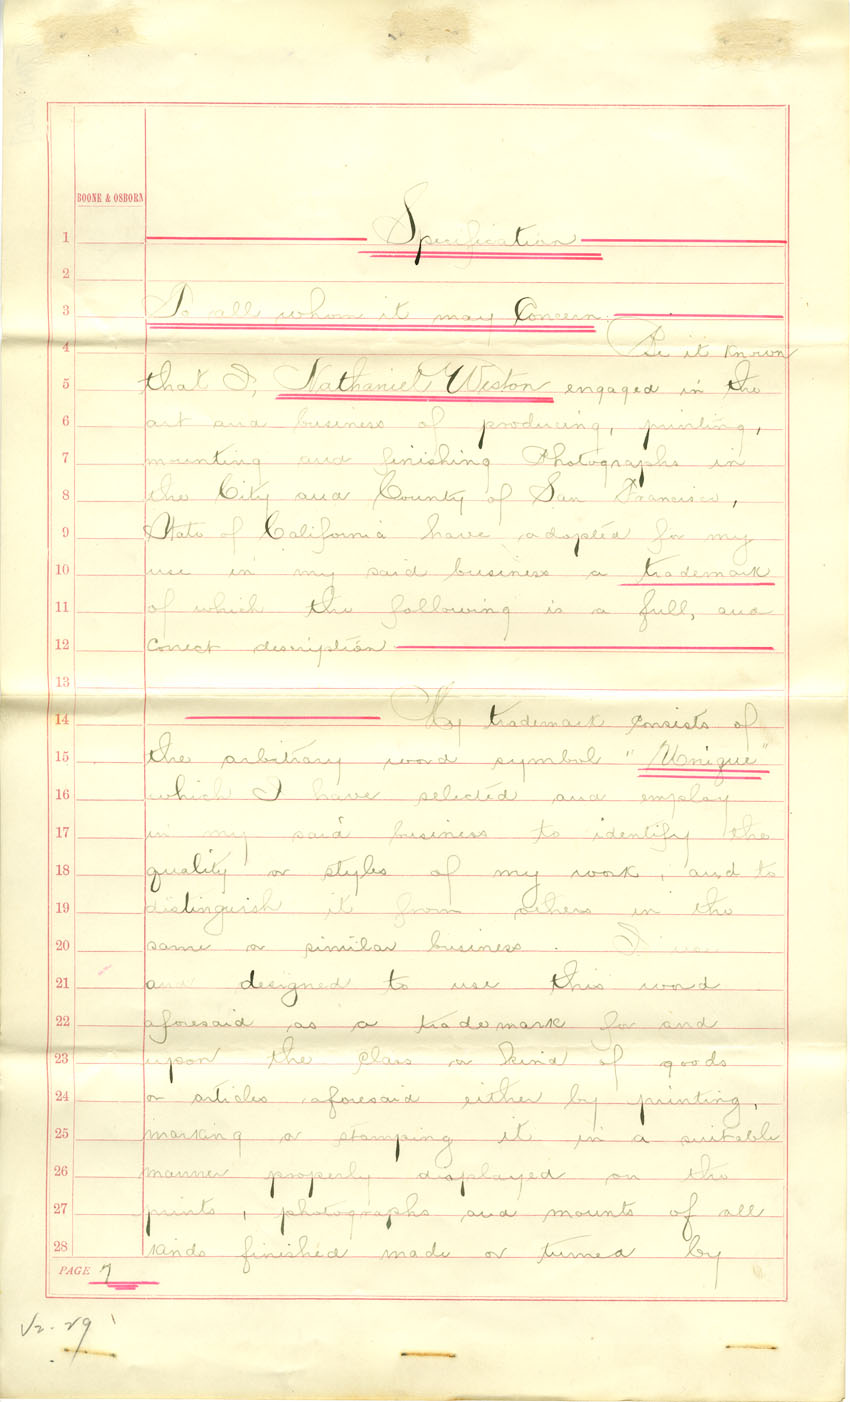 BOONE & OSBORN
1 Specification
2
3 To all whom it may Concern.
4 Be it known
5 that I, Nathaniel Weston engaged in the
6 art and business of producing, printing,
7 mounting and finishing Photographs in
8 the City and County of San Francisco,
9 State of California have adopted for my
10 use in my said business a trademark
11 of which the following is a full, and
12 correct description
13
14 My trademark consists of
15 the arbitrary word symbol "Unique"
16 which I have selected and employ
17 in my said business to identify the
18 quality or styles of my work, and to
19 distinguish it from others in the
20 same or similar business. I use
21 and designed to use this word
22 aforesaid as a trademark for and
23 upon the class or kind of goods
24 or articles aforesaid either by printing,
25 marking or stamping it in a suitable
26 manner properly displayed on the
27 prints, photographs and mounts of all
28 kinds finished made or turned by
PAGE 7